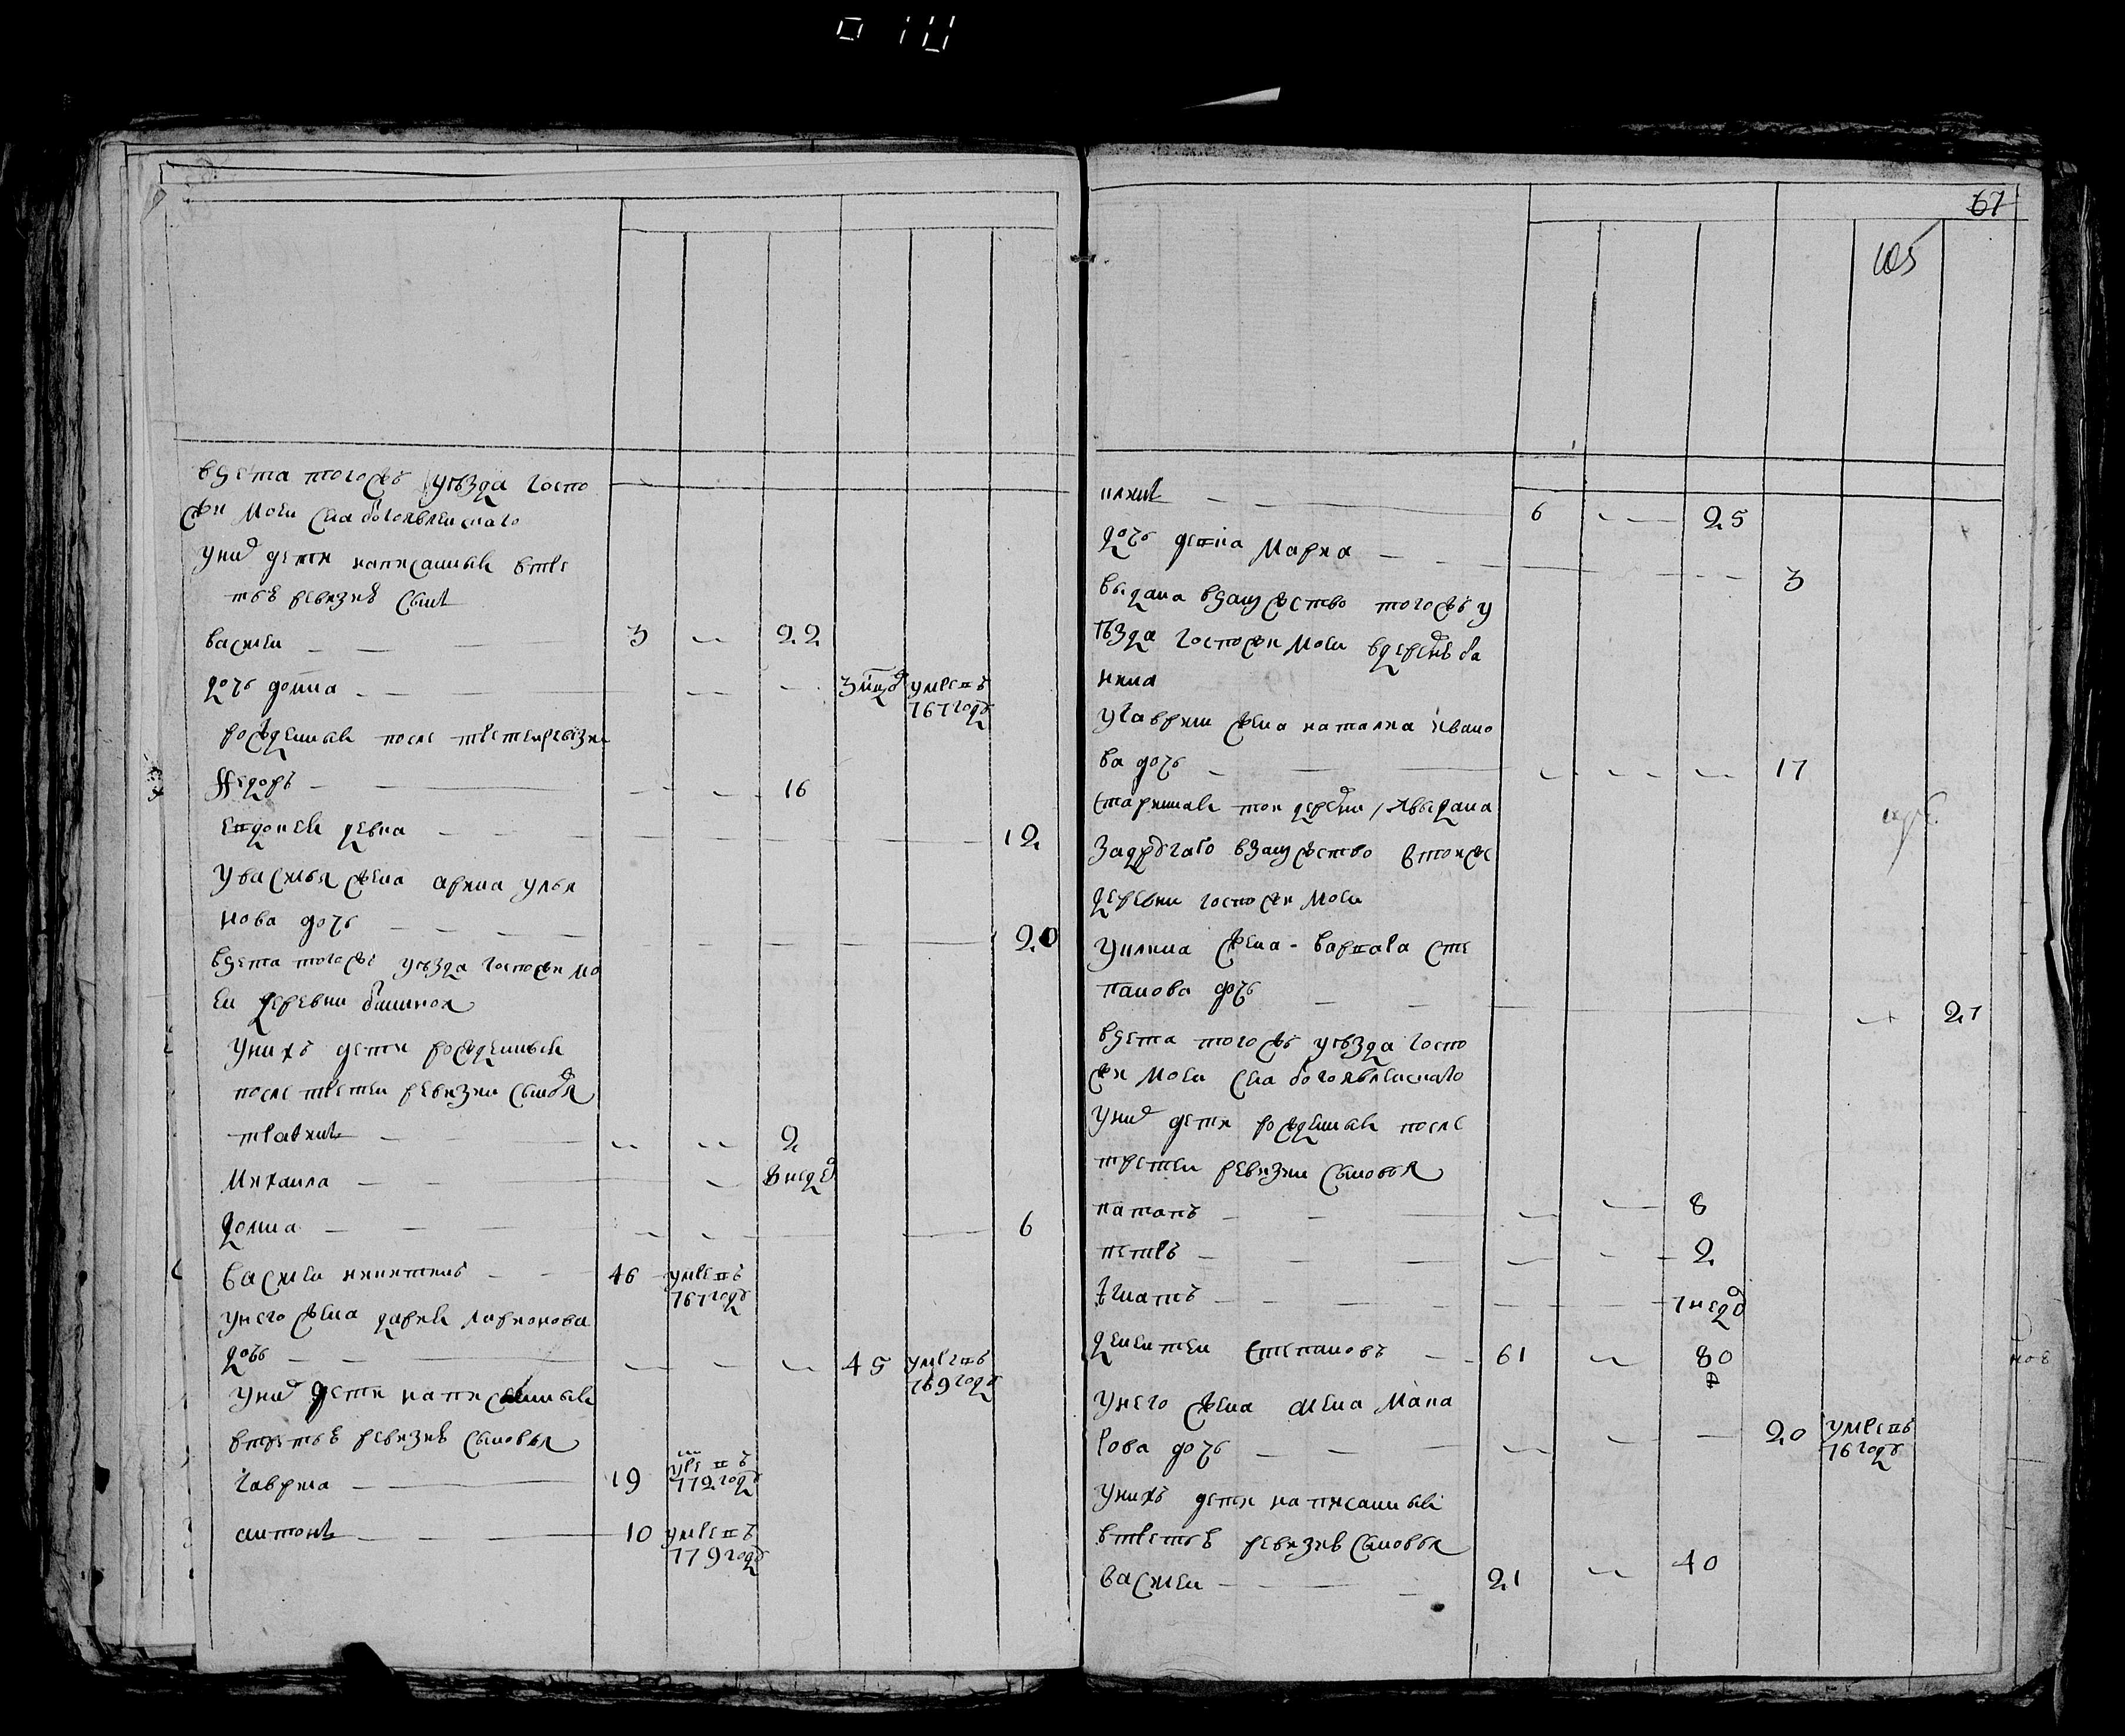 взета тогожъ уезда госпо
жи моеи села богоявленскаго
у них дети написанныя втре
тье ревизиѣ сынъ
василеи 3 22
дочь домна 3 нед умре въ 767 году
рожденныя после третеи ревизи
Ѳедоръ 16
девка 12
у василья жена арина улья
нова дочь 20
взета тогоже уезда госпожи мо
еи деревни
у нихъ дети рожденныя
после третеи ревизии сыновья
2
михаила 8 недель
домна 6
василеи никитинъ 46 умре въ 767 году
у него жена дарья ларионова
дочь 45 умре въ 769 году
у них дети написанныя
втретье ревизиѣ сыновья
гаврила 19 умре въ 772 году
антонъ 10 умре въ 779 году
67
105
илья 6 25
дочь девка марья 3
выдана взамужство тогожъ у
ѣзда госпожи моеи вдеревню ба
нина
у гаврилы жена наталья ивано
ва дочь 17
старинная тои деревни / и выдана
за другаго взамужство в тоижъ
деревни госпожи моеи
у ильи жена варвара сте
панова дочь 27
взета тогожъ уезда госпо
жи моеи села богоявленскаго
у них дети рожденныя после
третеи ревизии сыновья
потапъ 8
петръ 2
игнатъ 7 недель
дементеи степановъ 61 80
у него жена мака
рова дочь 20 умре въ 76 году
у нихъ дети написанныя
втретье ревизиѣ сыновья
василеи 21 40